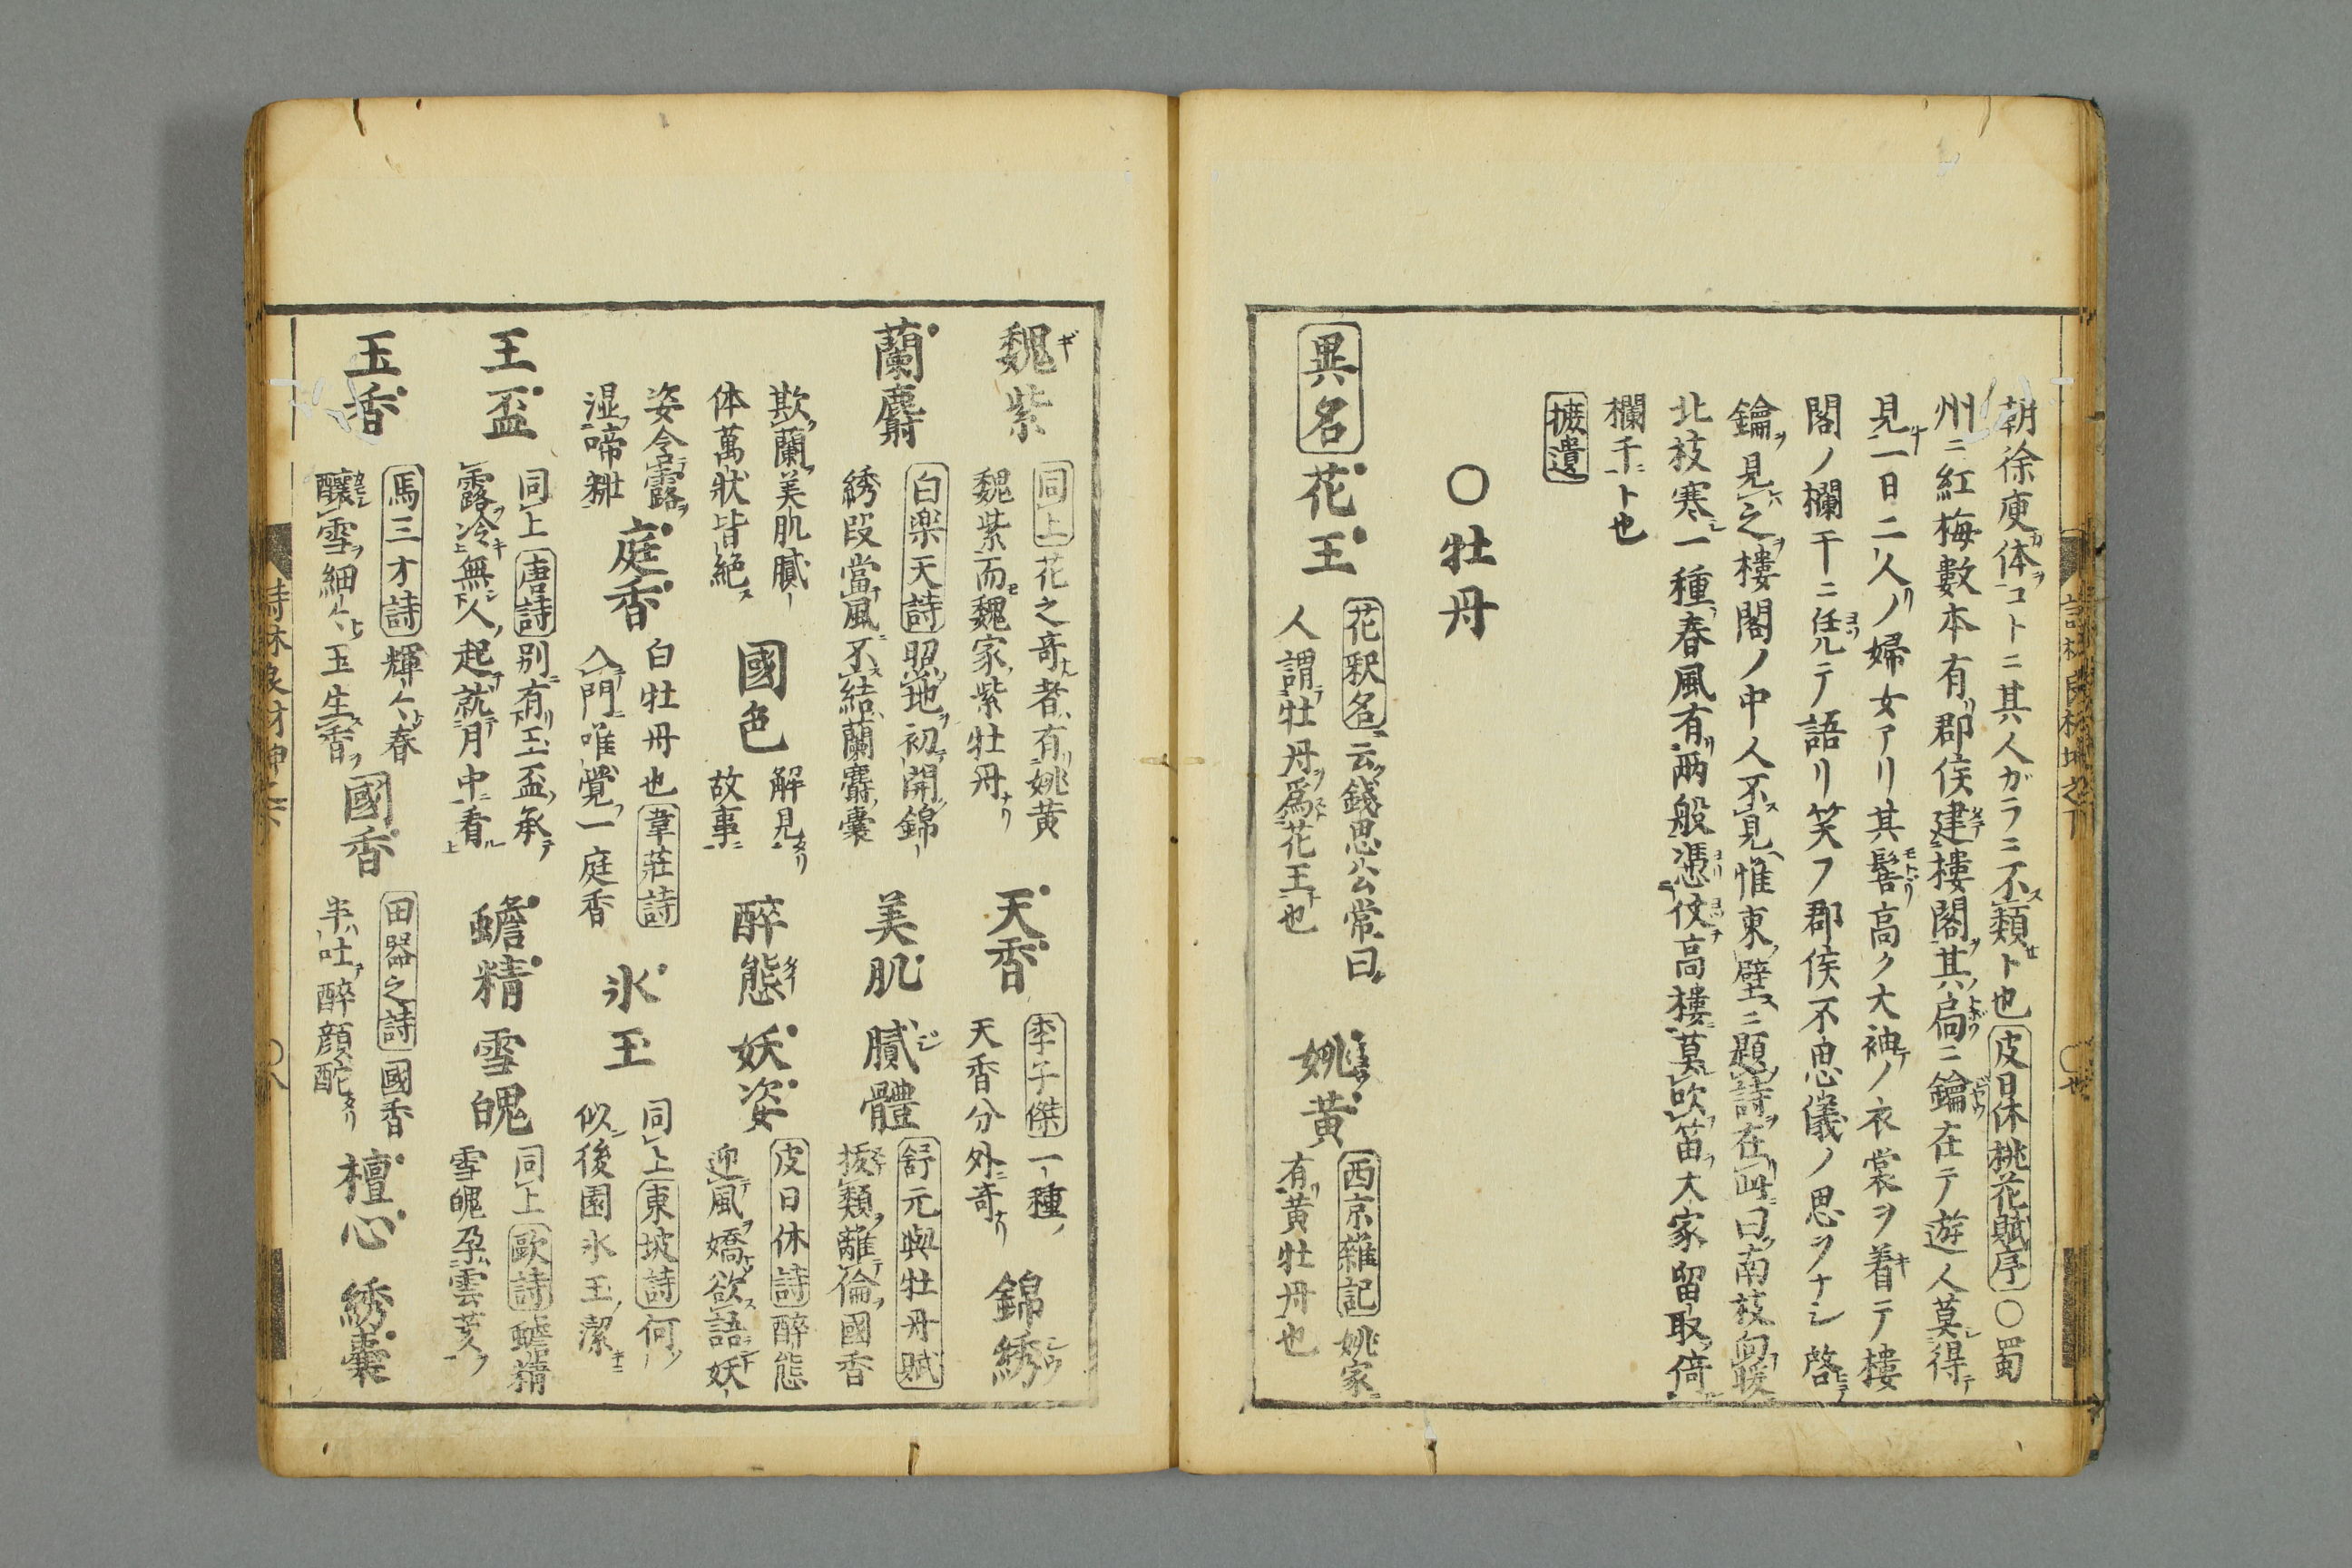 朝徐庾体コトニ其人ガラニ不類ト也皮日休桃花賦序〇蜀
州ニ紅梅數本有郡侯建樓閣其扃ニ鑰在テ遊人莫得
見一日二人ノ婦女アリ其髻高ク大袖ノ衣裳ヲ着テ樓
閣ノ欄干ニ凭テ語リ笑フ郡侯不思儀ノ思ヲナシ啓
鑰見之樓閣ノ中人不見惟東壁ニ題詩在曰南枝向暖
北枝寒一種春風有兩般憑仗高樓莫吹笛大家留取倚
欄干ト也
摭遺
〇牡丹
異名
花王
花釈名云錢思公常曰
人謂牡丹爲花王也
姚黄
西京雜記姚家
有黄牡丹也
魏紫
同上花之奇者有姚黄
魏紫而魏家紫牡丹
天香
李子傑一種
天香分外奇
錦綉
蘭麝
白楽天詩照地初開錦
綉段當風不結蘭麝嚢
美肌
膩體
舒元輿牡丹賦
抜類離倫國香
欺蘭美肌膩
体萬狀皆絶
國色
解見
故事
醉態
妖姿
皮日休詩醉態
迎風嬌欲語妖
姿含露
湿啼粧
庭香
白牡丹也韋莊詩
入門唯覺一庭香
氷玉
同上東坡詩何
似後園氷玉潔
玉盃
同上唐詩別有玉盃承
露冷無人起就月中看
蟾精
雪魄
同上歐詩蟾精
雪魄孕雲荄
玉香
馬三才詩輝々春
釀雪細々玉生香
國香
田器之詩國香
半吐醉顔酡
檀心
綉嚢